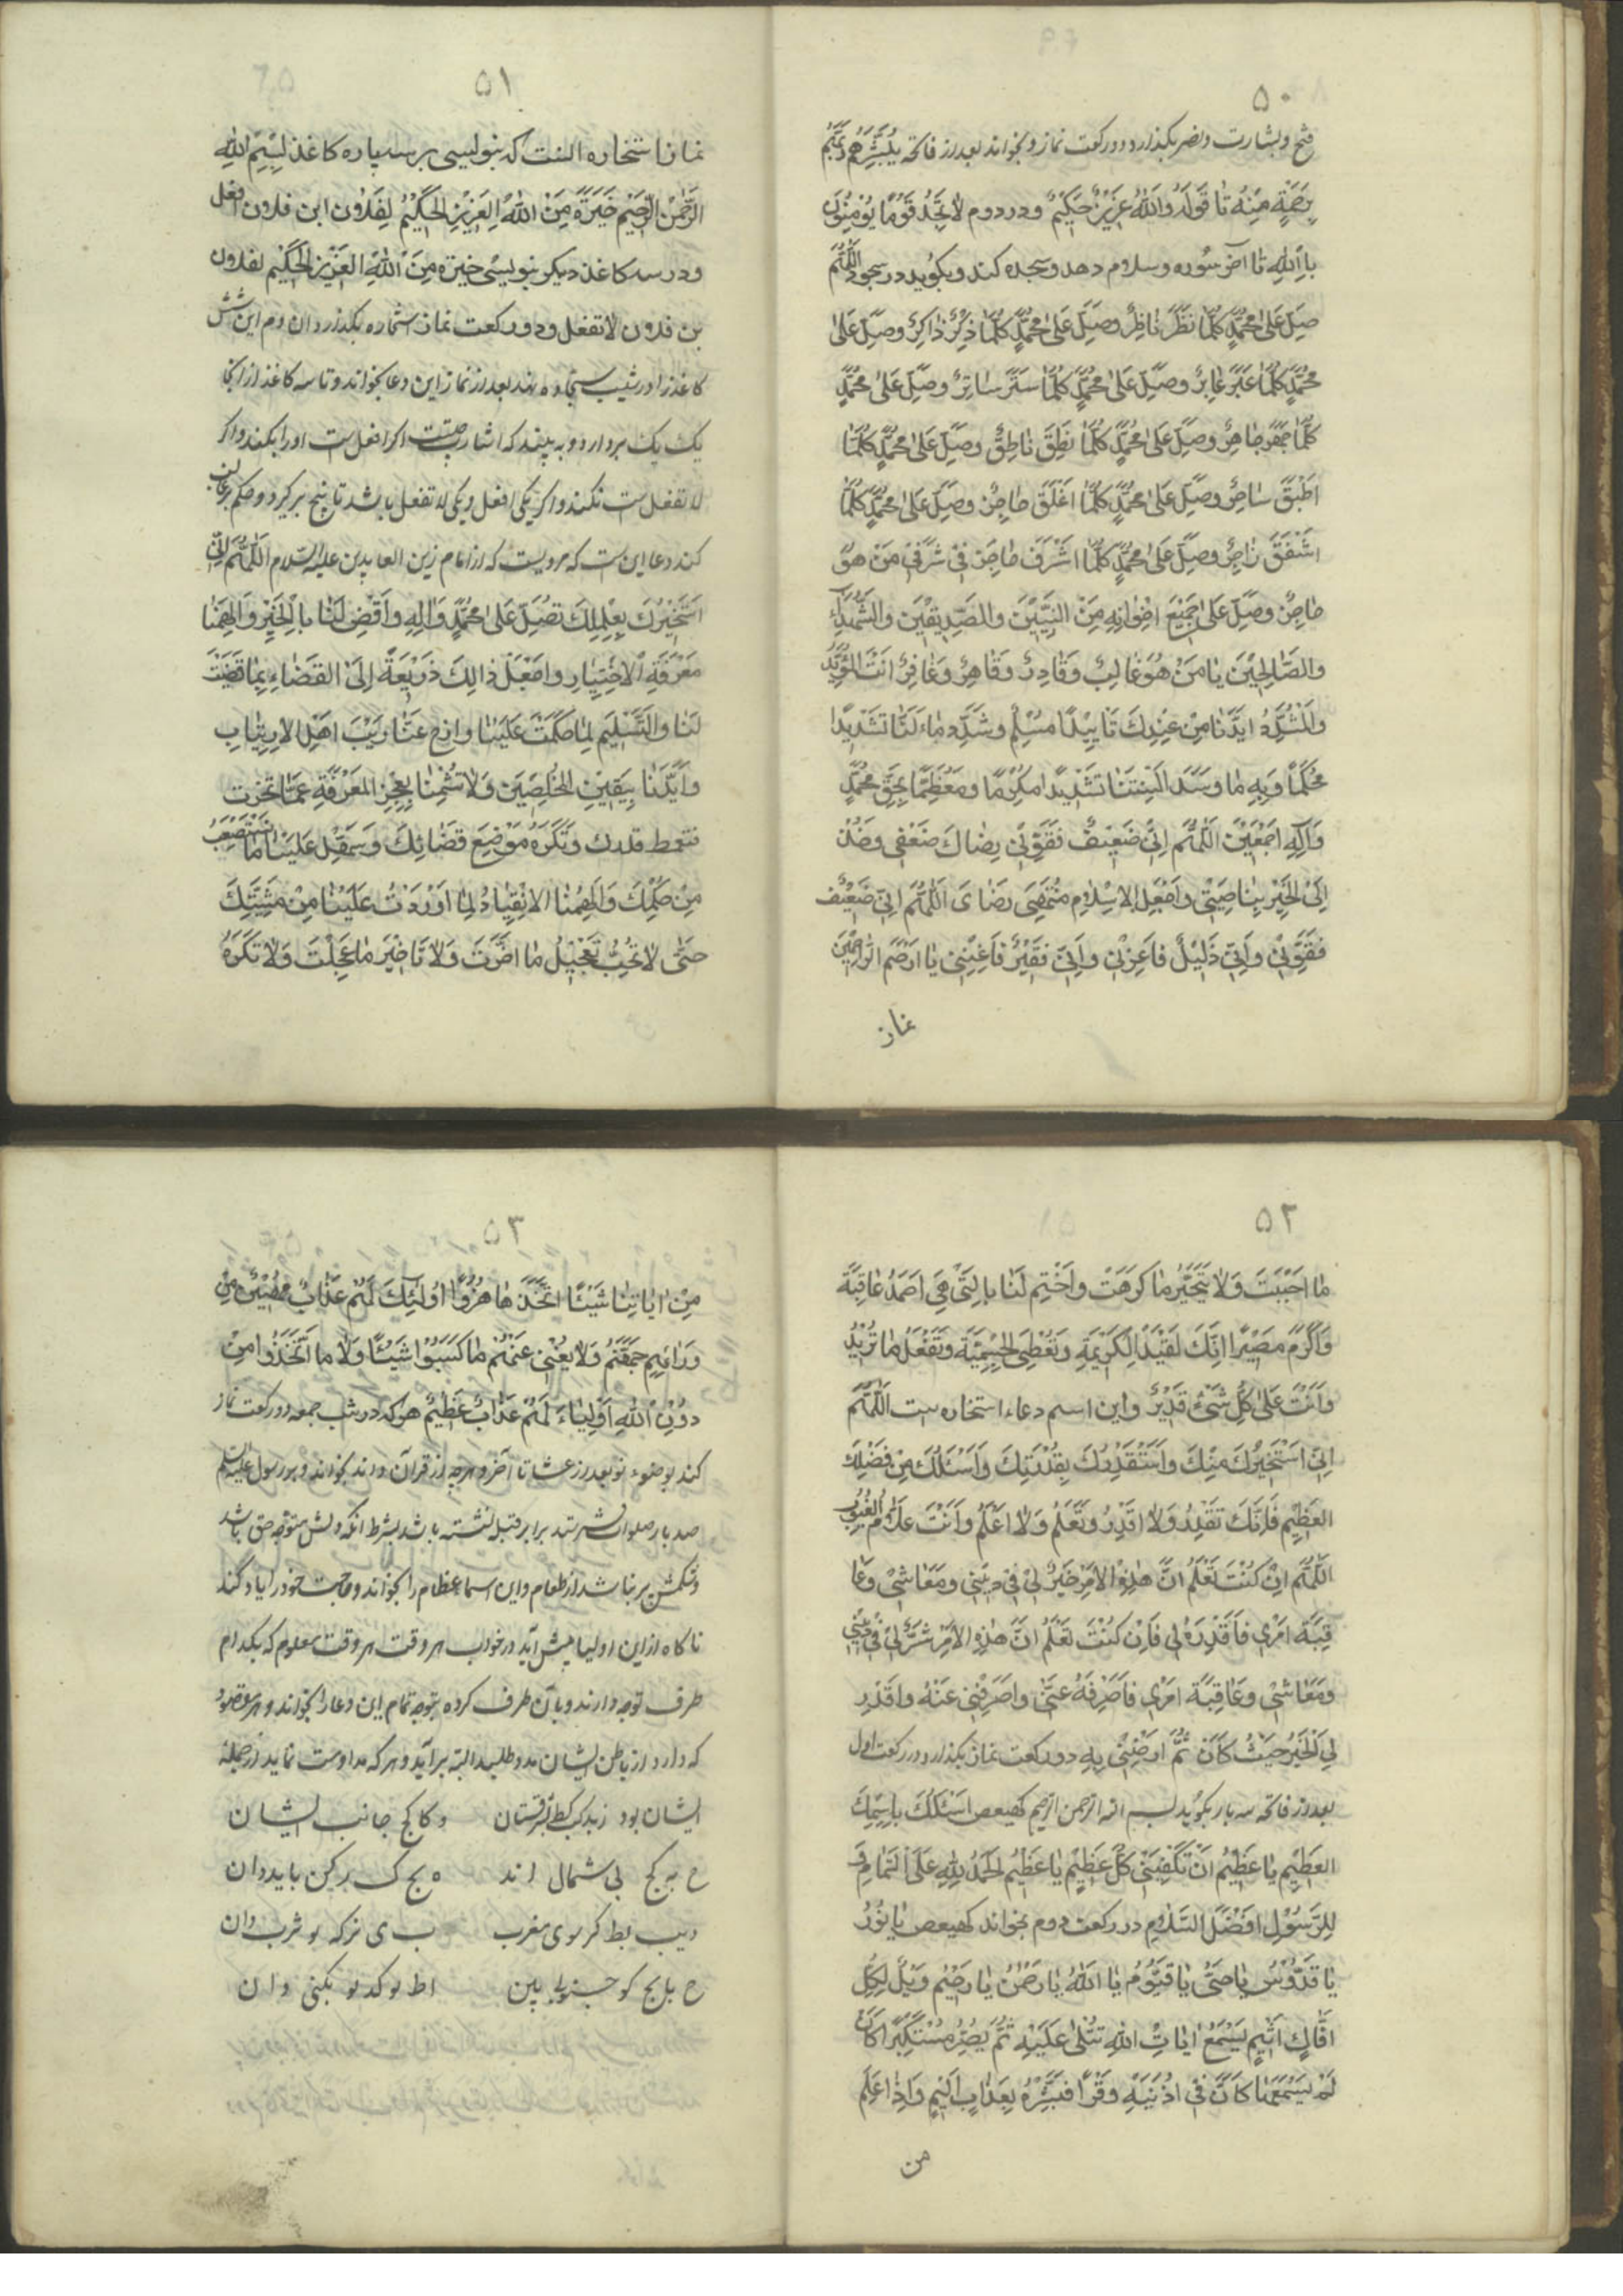 ۵۰
فتح و بشارت و نصر بکذارد دو رکعت نماز و بخواند بعد از فاتحه یُبَشِّرُهُم رَبُّهُم
بِرَحْمَةٍ مِنْهُ تا قَولَهُ وَاللّٰهُ عَزِیزٌ حَکِیمٌ و در دوم لاٰ تَجِدُ قَوْمًا یُؤْمِنُونَ
بِاللّٰهِ تا آخر سُوره و سلام دهد و سجده کند و بکوید در سجود اَللّٰهُمَّ
صَلِّ عَلیٰ مُحَمَّدٍ کُلَّمٰا نَظَرَ نٰاظِرٌ وصَلِّ عَلیٰ مُحَمَّدٍ کُلَّمٰا ذَکَرَ ذٰاکِرٌ وصَلِّ عَلیٰ
مُحَمَّدٍ کُلَّمٰا عَبَرَ عٰابِرٌ وصَلِّ عَلیٰ مُحَمَّدٍ کُلَّمٰا سَتَرَ سٰاتِرٌ وصَلِّ عَلیٰ مُحَمَّدٍ
کُلَّمٰا جَهَرَ جٰاهِرٌ وصَلِّ عَلیٰ مُحَمَّدٍ کُلَّمٰا نَطَقَ نٰاطِقٌ وصَلِّ عَلیٰ مُحَمَّدٍ کُلَّمٰا
اطبَقَ وصَلِّ عَلیٰ مُحَمَّدٍ کُلَّمٰا اغلَقَ وصَلِّ عَلیٰ مُحَمَّدٍ کُلَّمٰا
وصَلِّ عَلیٰ مُحَمَّدٍ کُلَّمٰا اشرَفَ فی شَرَفی مَن هُوَ
وصَلِّ عَلیٰ جَمیعِ اِخْوٰانِهِ مِنَ النَّبِیّینَ والصِّدّیقینَ والشُّهَدٰاءِ
والصّٰالِحینَ یٰا مَنْ هُوَ غٰالِبٌ وَقٰادِرٌ وَقٰاهِرٌ وَغٰافِرٌ اَنْتَ المُؤَیِّدُ
والمُشَدِّدُ ایِّدْنٰا مِنْ عِنْدِکَ تَأییدًا وشَدِّد تَشْدیدًا
مُحکَمًا اَلْسِنَتَنٰا مُکَرَّمًا ومُعَظَّمًا بِحَقِّ مُحَمَّدٍ
وَآلِهِ اجْمَعینَ اَللّٰهُمَّ اِنّی ضَعیفٌ فَقَوِّنی رِضٰاکَ ضَعْفی وخُذْ
اِلَی الخَیْرِ بِنٰاصِیَتی واجْعَلِ الاِسْلاٰمِ مُنْتَهیٰ رِضٰایَ اَللّٰهُمَّ اِنّی ضَعیفٌ
فَقَوِّنی واِنّی ذَلیلٌ فَاَعِزَّنی واِنّی فَقیرٌ فَاَغْنِنی یٰا ارْحَمَ الرّٰاحِمینَ
نماز
۵۱
نماز استخاره انست که بنویسی بر سه پاره کاغذ بِسْمِ اللّٰهِ
الرَّحْمٰنِ الرَّحیمِ خِیَرَةٌ مِنَ اللّٰهِ العَزیزِ الحَکیمِ لِفلان ابن فلان افعل
و در سه کاغذ دیکر بنویسی خیرة مِنَ اللّٰهِ العَزیزِ الحَکیمِ لفلان
بن فلان لا تفعل و دو رکعت نماز استخاره بکذرد این شش
کاغذ را در شیب سجاده نهد بعد از نماز این دعا بخواند و تا سه کاغذ از انجا
یک یک بردارد و به بیند که اشارت چیست اکر افعل ست او را بکند و اکر
لا تفعل ست نکند و اکر یکی افعل و یکی لا تفعل باشد تا پنج برکیرد و حکم بر غالب
کند دعا این ست که مرویست که از امام زین العابدین علیه السلام اَللّٰهُمَّ اِنّی
اَسْتَخیرُکَ بِعِلْمِکَ تُصَلِّ عَلیٰ مُحَمَّدٍ وَآلِهِ وَاقْضِ لَنٰا بِالْخَیْرِ وَالهِمْنٰا
مَعْرِفَةِ الاِختِیٰارِ واجْعَلْ ذٰالِکَ ذَریعَةً اِلَی القَضٰاءِ بِمٰا قَضَیْتَ
لَنٰا وَالتَّسْلیمِ لِمٰا حَکَمْتَ عَلَیْنٰا وازح عَنّٰا رَیْبَ اهْلِ الارتیٰابِ
وَایِّدْنٰا بِیَقینِ المُخْلِصینَ وَلاٰ تسُمْنٰا بِعَجْزِ المَعْرِفَةِ عَمّٰا تخرت
فنغمط قدرک ونَکْرَهُ مَوْضِعَ قَضٰائِکَ وسَهِّل عَلَیْنٰا مٰا نَسْتَصْعِبُ
مِنْ حکمِکَ وَالهِمْنٰا الانْقِیٰادُ لِمٰا اوْرَدْتَ عَلَیْنٰا مِنْ مَشِیَّتِکَ
حَتّٰی لاٰ نُحِبَّ تَعْجیلَ مٰا اخَّرْتَ وَلاٰ تٰاخیرَ مٰا عَجَّلْتَ وَلاٰ نَکْرَهَ
۵۲
مٰا احْبَبْتَ وَلاٰ نَتَخَیَّرَ مٰا کَرِهْتَ واخْتِمْ لَنٰا بِالَّتی هِیَ احْمَدُ عٰاقِبَةً
وَاَکْرَمُ مَصیرًا اِنَّکَ تُفیدُ الکَریمَةِ وتُعْطِی الجَسیمَةِ وتَفْعَلُ مٰا تُریدُ
وَاَنْتَ عَلیٰ کُلِّ شَیْءٍ قَدیرٌ و این اسم دعاء استخاره ست اَللّٰهُمَّ
اِنّی اسْتَخیرُکَ مِنْکَ وَاسْتَقْدِرُکَ بِقُدْرَتِکَ وَاَسْئَلُکَ مِنْ فَضْلِکَ
العَظیمِ فَاِنَّکَ تَقْدِرُ وَلاٰ اقْدِرُ وتَعْلَمُ وَلاٰ اعْلَمُ وَاَنْتَ عَلّٰامُ الغُیُوبِ
اَللّٰهُمَّ اِنْ کُنْتَ تَعْلَمُ انَّ هٰذِهِ الامْرَ خَیْرٌ لی فی دینی ومَعٰاشی وعٰا
قِبَةِ امْری فَاقْدِرْهُ لی فَاِنْ کُنْتَ تَعْلَمُ انَّ هٰذِهِ الامْرَ شَرٌّ لی فی دینی
ومَعٰاشی وعٰاقِبَةِ امْری فَاصْرِفْهُ عَنّی واصْرِفْنی عَنْهُ واقْدِرْ
لِیَ الْخَیْرَ حَیْثُ کٰانَ ثُمَّ ارْضِنی بِهِ دو رکعت نماز بکذارد در رکعت اول
بعد از فاتحه سه بار بکوید بسم الله الرحمن الرحیم کهیعص اَسْئَلُکَ بِاسْمِکَ
العَظیمِ یٰا عَظیمُ انْ تَکْفِیَنی کُلَّ عَظیمٍ یٰا عَظیمُ الحَمْدُ لِلّٰهِ عَلَی التَّمٰامِ وَ
لِلرَّسُولِ افْضَلُ السَّلاٰمِ در رکعت دوم بخواند کهیعص یٰا نُورُ
یٰا قُدُّوسُ یٰا حَیُّ یٰا قَیُّومُ یٰا اَللّٰهُ یٰا رَحْمٰنُ یٰا رَحیمُ وَیْلٌ لِکُلِّ
افّٰاکٍ اثیمٍ یَسْمَعُ اٰیٰاتِ اللّٰهِ تُتْلیٰ عَلَیْهِ ثُمَّ یُصِرُّ مُسْتَکْبِرًا کَاَنْ
لَمْ یَسْمَعْهٰا کَاَنَّ فی اُذُنَیْهِ وَقْرًا فَبَشِّرْهُ بِعَذٰابٍ الیمٍ وَاِذٰا عَلِمَ
من
۵۳
مِنْ اٰیٰاتِنٰا شَیْئًا اتَّخَذَهٰا هُزُوًا اُولٰئِکَ لَهُمْ عَذٰابٌ مُهینٌ مِنْ
وَرٰائِهِم جَهَنَّمُ وَلاٰ یُغْنی عَنْهُمْ مٰا کَسَبُوا شَیْئًا وَلاٰ مٰا اتَّخَذُوا مِنْ
دُونِ اللّٰهِ اَوْلِیٰاءَ لَهُمْ عَذٰابٌ عَظیمٌ هر که در شب جمعه دو رکعت نماز
کند بوضوء نو بعد از عشا تا آخر و هر چه از قرآن داند بخواند و بر رسول علیه السلام
صد بار صلوات فرستد برابر قبله نشسته باشد بشرط انکه دلش متوجه حق باشد
و شکمش پر نباشد از طعام و این اسماء عظام را بخواند و حاجت خود را یاد کند
ناکاه از این اولیا پیش آید در خواب هر وقت هر وقت معلوم که بکدام
طرف توجه دارند و بآن طرف کرده بتوجه تمام این دعا را بخواند و هر مقصود
که دارد از باطن ایشان مدد طلبد البته برآید و هر که مداومت نماید از جمله
ایشان بود جانب ایشان
شمال اند باید دان
مغرب دان
دان